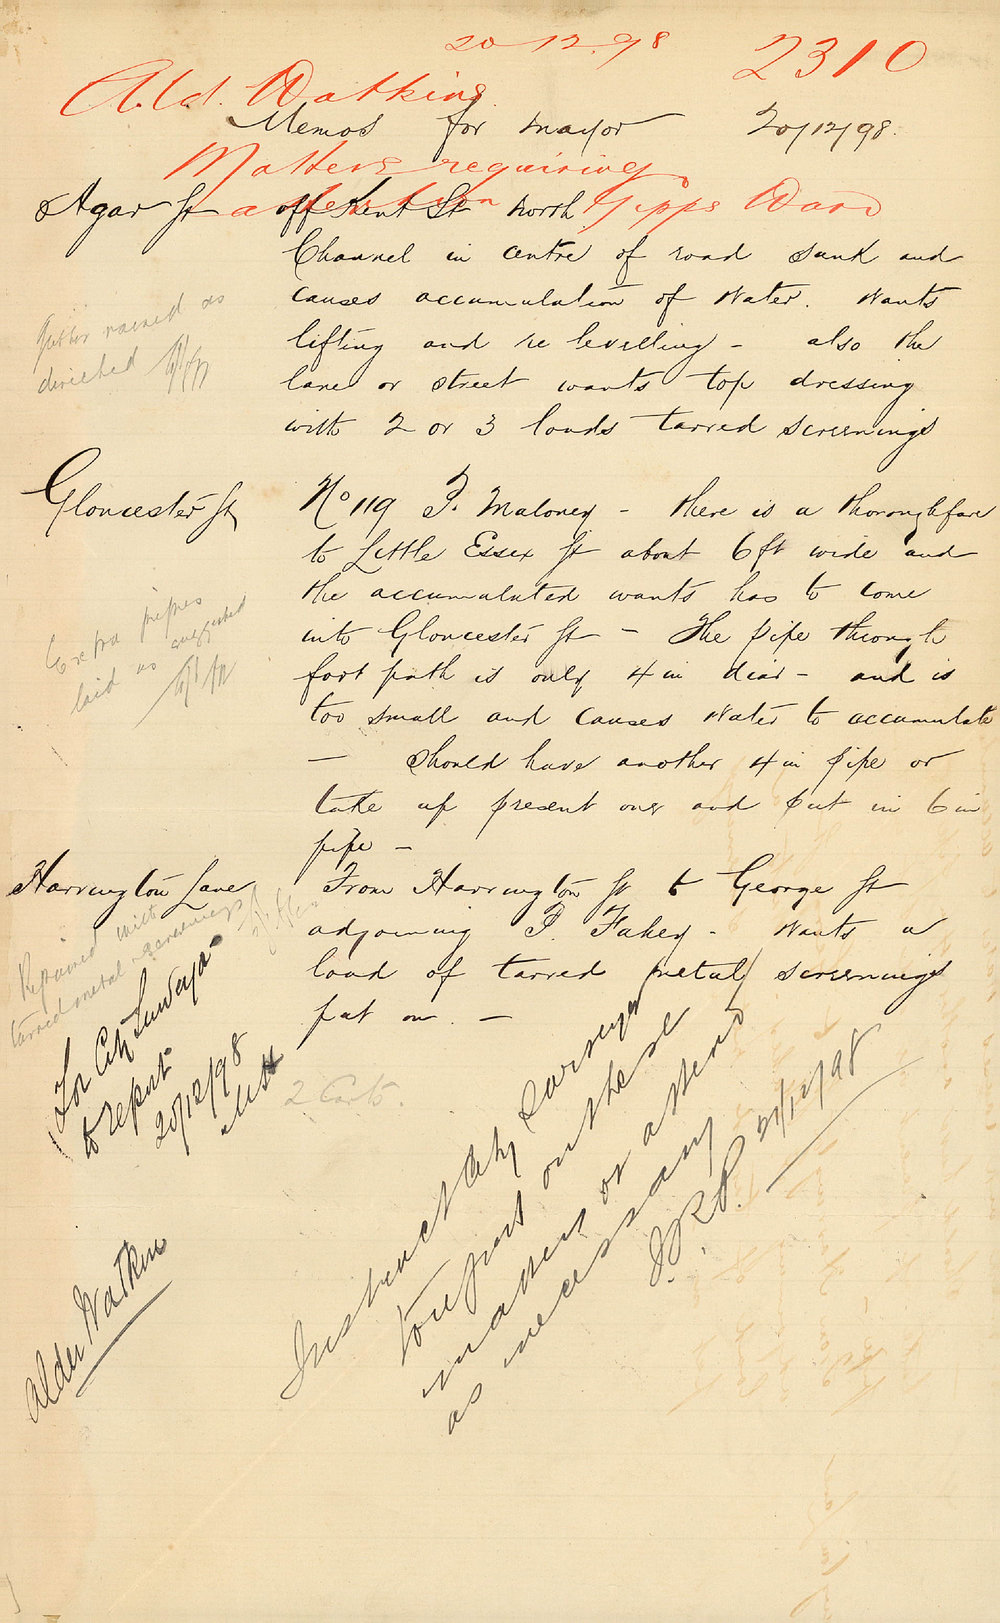 20-12.98
2310
Ald. Watkins
Memos for mayor 20/12/98.
Matters requiring
attention Gipps Ward
Agar St off Kent St North
Channel in centre of road sunk and
causes accumulation of water. Wants
lifting and re levelling - also the
lane or street wants top dressing
with 2 or 3 loads tarred screenings
Gutter raised as
directed
Gloucester St
No 119 F. Maloney - there is a thoroughfare
to Little Essex St about 6 ft wide and
the accumulated wants has to come
into Gloucester St - The pipe through
foot path is only 4 in diar - and is
too small and causes water to accumulate
- should have another 4 in pipe or
take up present one and put in 6 in
pipe -
Extra pipes
laid as suggested
Harrington Lane
From Harrington St to George St
adjoining P. Fahey - Wants a
load of tarred metal screenings
put on. -
Repaired with
tarred metal screenings
For City Surveyor
to report
20/12/98
2 Carts.
Instruct City Surveyor
to report on these
matters or attend
as necessary
21/12/98
Alder Watkins